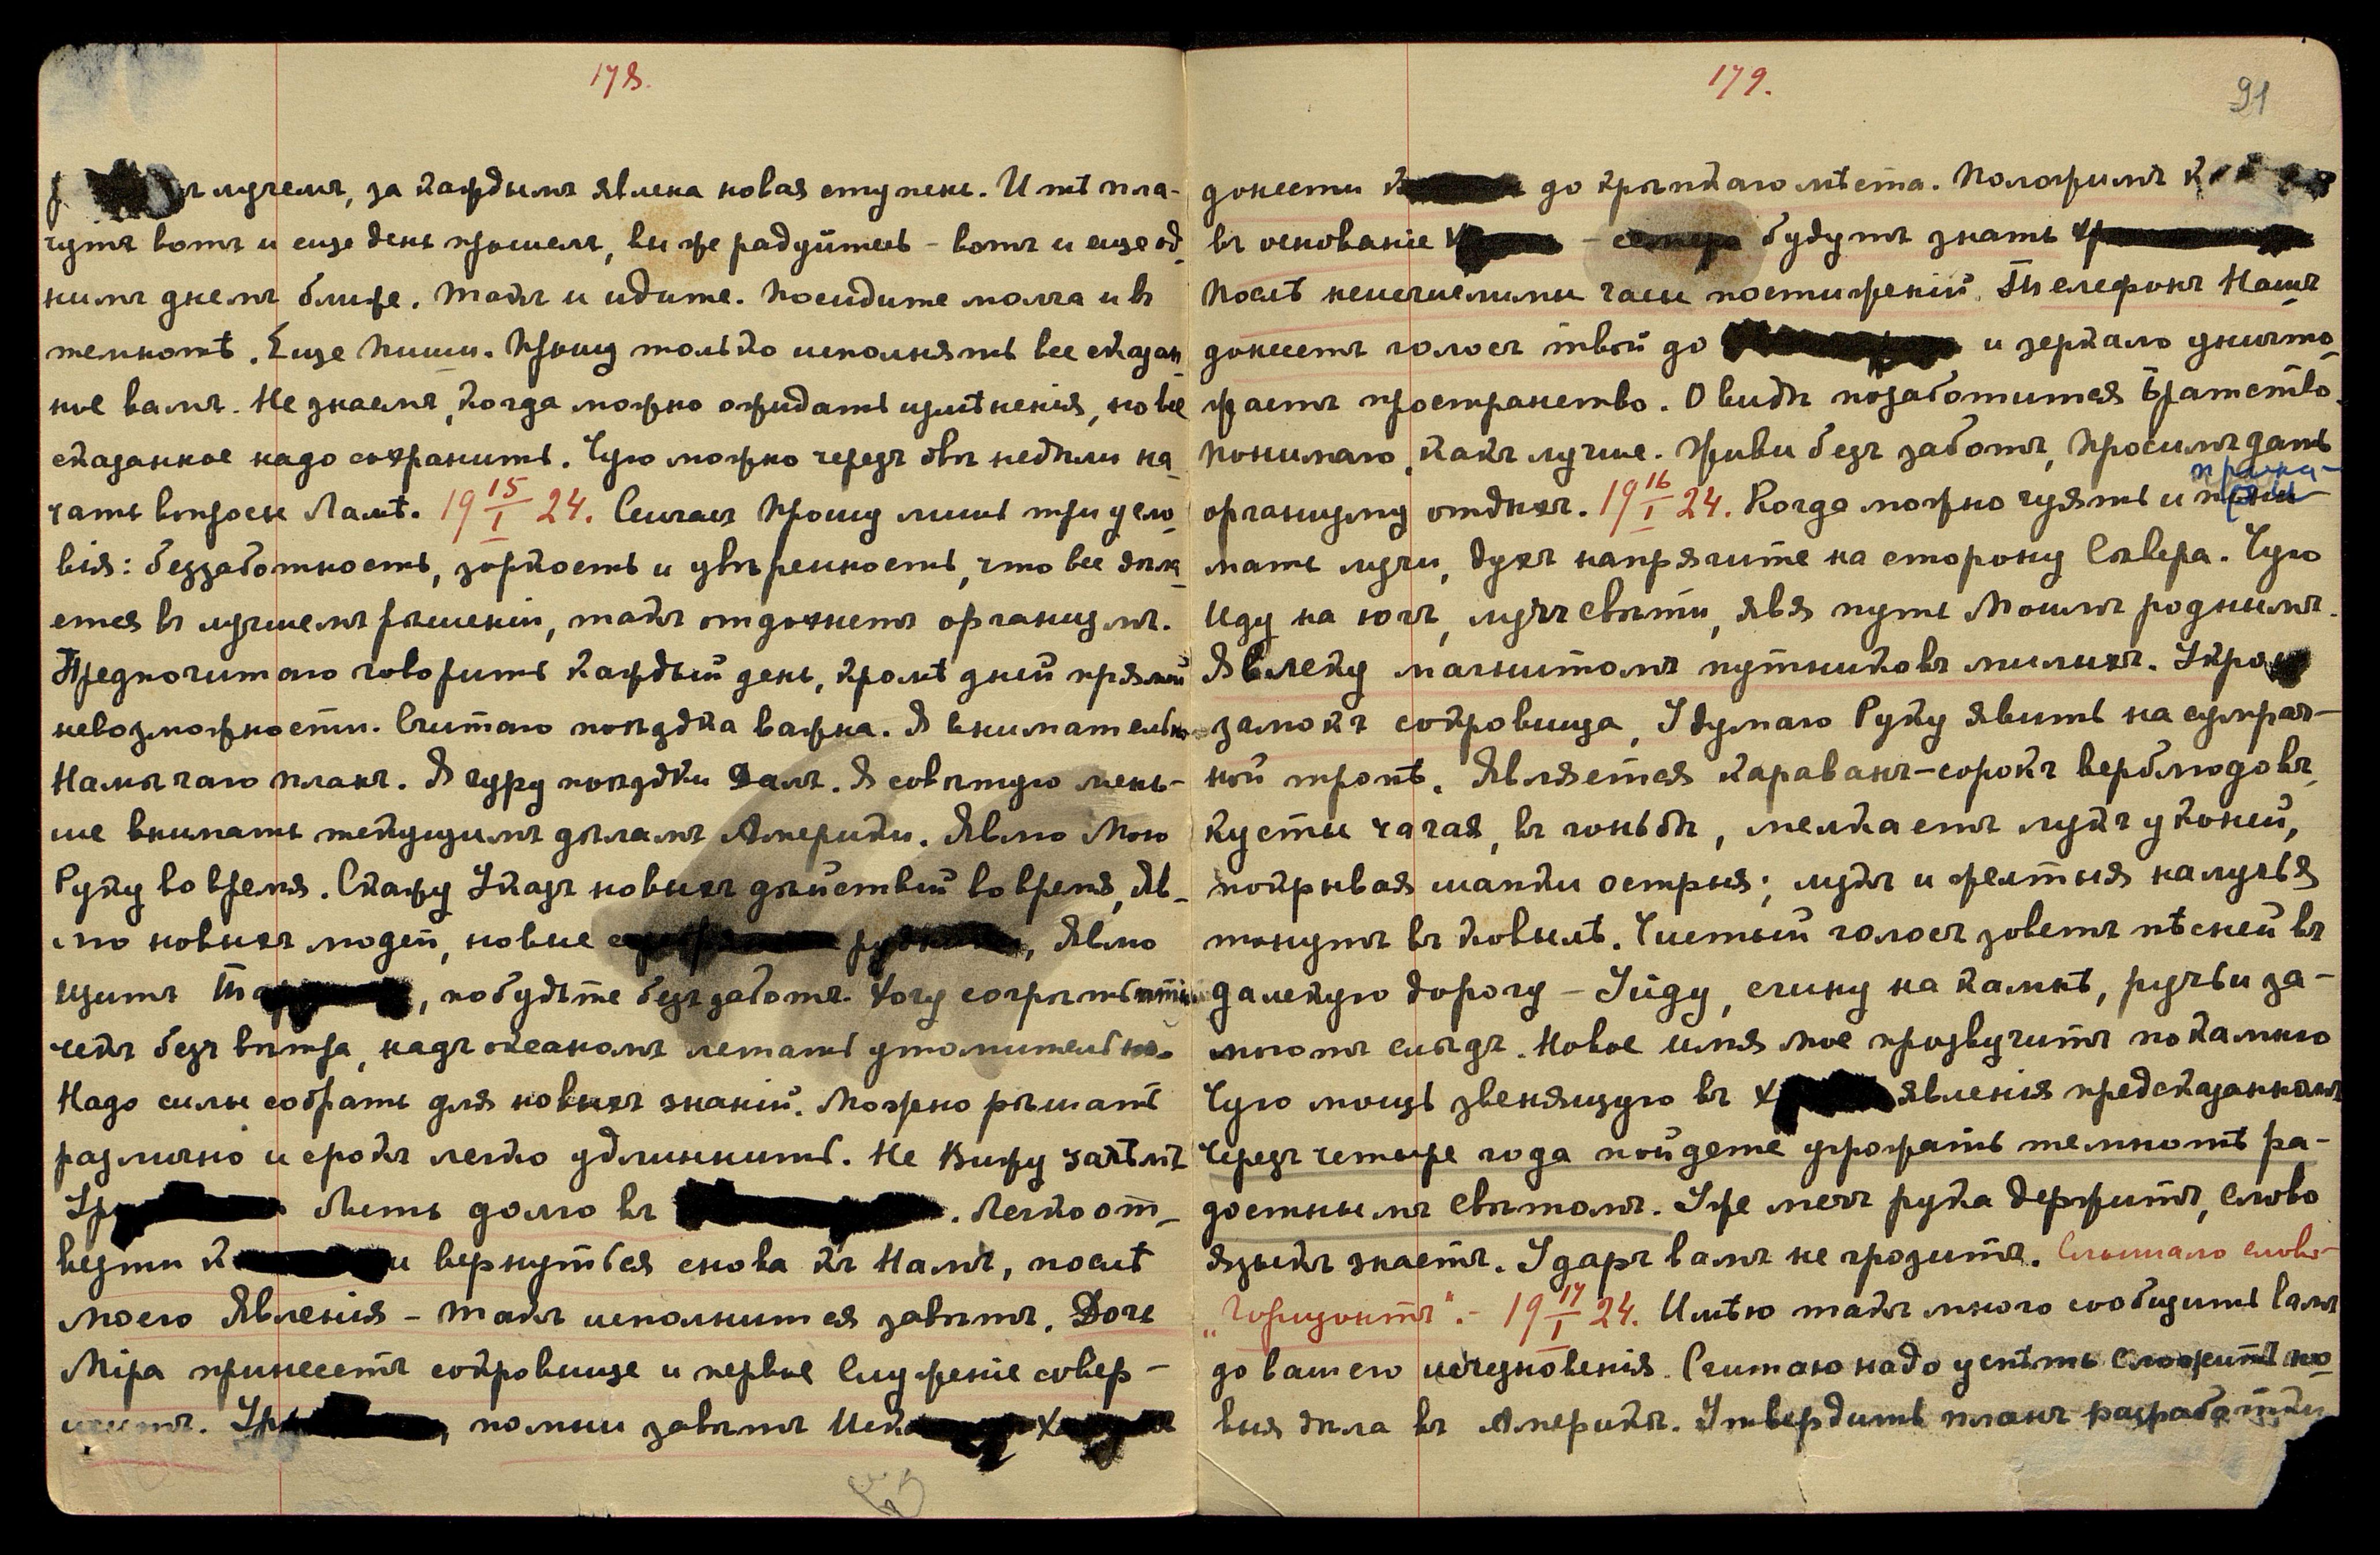 178.
лучемъ, за каждымъ явлена новая ступень. И тѣ пла-
чутъ вотъ и еще день прошелъ, вы же радуйтесь – вотъ и еще од-
нимъ днемъ ближе. Такъ и идите. Посидите молча и въ
темнотѣ. Еще пиши. Прошу только исполнять все сказан-
ное вамъ. Не знаемъ, когда можно ожидать измѣненія, но все
сказанное надо сохранить. Чую можно черезъ двѣ недѣли на-
чать вопросы Ламѣ. 19 15/I 24. Сейчасъ Прошу лишь три усло-
вія: беззаботность, зоркость и увѣренность, что все дѣла-
ется въ лучшемъ рѣшеніи, такъ отдохнетъ организмъ.
Предпочитаю говорить каждый день, кромѣ дней прямой
невозможности. Считаю поѣздка важна. Я внимательно
Намѣчаю планъ. Я гуру поѣздки Далъ. Я совѣтую мень-
ше внимать текущимъ дѣламъ Америки. Явлю Мою
Руку во время. Скажу Указъ новыхъ дѣйствій во время, Яв-
лю новыхъ людей, новые , Явлю
Щитъ , побудьте безъ заботъ. Хочу согрѣть пти-
чекъ безъ вѣтра, надъ океаномъ летать утомительно.
Надо силы собрать для новыхъ знаній. Можно рѣшать
различно и срокъ легко удлиннить. Не Вижу зачѣмъ
 быть долго въ . Легко от-
везти и вернуться снова къ Намъ, послѣ
моего Явленія – такъ исполнится завѣтъ. Дочь
Міра принесетъ сокровище и первое Служеніе совер-
шитъ. , помни завѣтъ
179.
91
донести до крѣпкаго мѣста. Положимъ
въ основаніе – будутъ знать
Послѣ неисчислимы часы постиженій. Телефонъ Нашъ
донесетъ голосъ твой до и зеркало уничто-
жаетъ пространство. О видѣ позаботится Братство.
Понимаю, какъ лучше. Живи безъ заботъ, Просимъ дать
организму отдыхъ. 19 16/I 24. Когда можно чуять и прини-
мать лучи, духъ напрягите на сторону Сѣвера. Чую
Иду на югъ, лучъ свѣти, явя путь Моимъ роднымъ.
Я влеку магнитомъ путниковъ милыхъ. Укрою
замокъ сокровища, Удумаю Руку явить на сумрач-
ной тропѣ. Является караванъ – сорокъ верблюдовъ,
кусты чагая, въ гоньбѣ, мелкаетъ лукъ у коней,
покрывая шапки острыя; лука и желтыя налучья
тонутъ въ ковылѣ. Чистый голосъ зоветъ пѣсней въ
далекую дорогу – Уйду, сгину на камнѣ, ручьи за-
моютъ слѣдъ. Новое имя мое прозвучитъ по камню
Чую мощь звенящую въ явленія предсказаннаго
Черезъ четыре года пойдете угрожать темнотѣ ра-
достнымъ Свѣтомъ. Уже мечъ рука держитъ, слово
языкъ знаетъ. Ударъ вамъ не грозитъ. Слышало слово
„Горизонтъ“. – 19 17/I 24. Имѣю такъ много сообщить вамъ
до вашего исчезновенія. Считаю надо успѣть сложить но-
выя дѣла въ Америкѣ. Утвердить планъ разработки